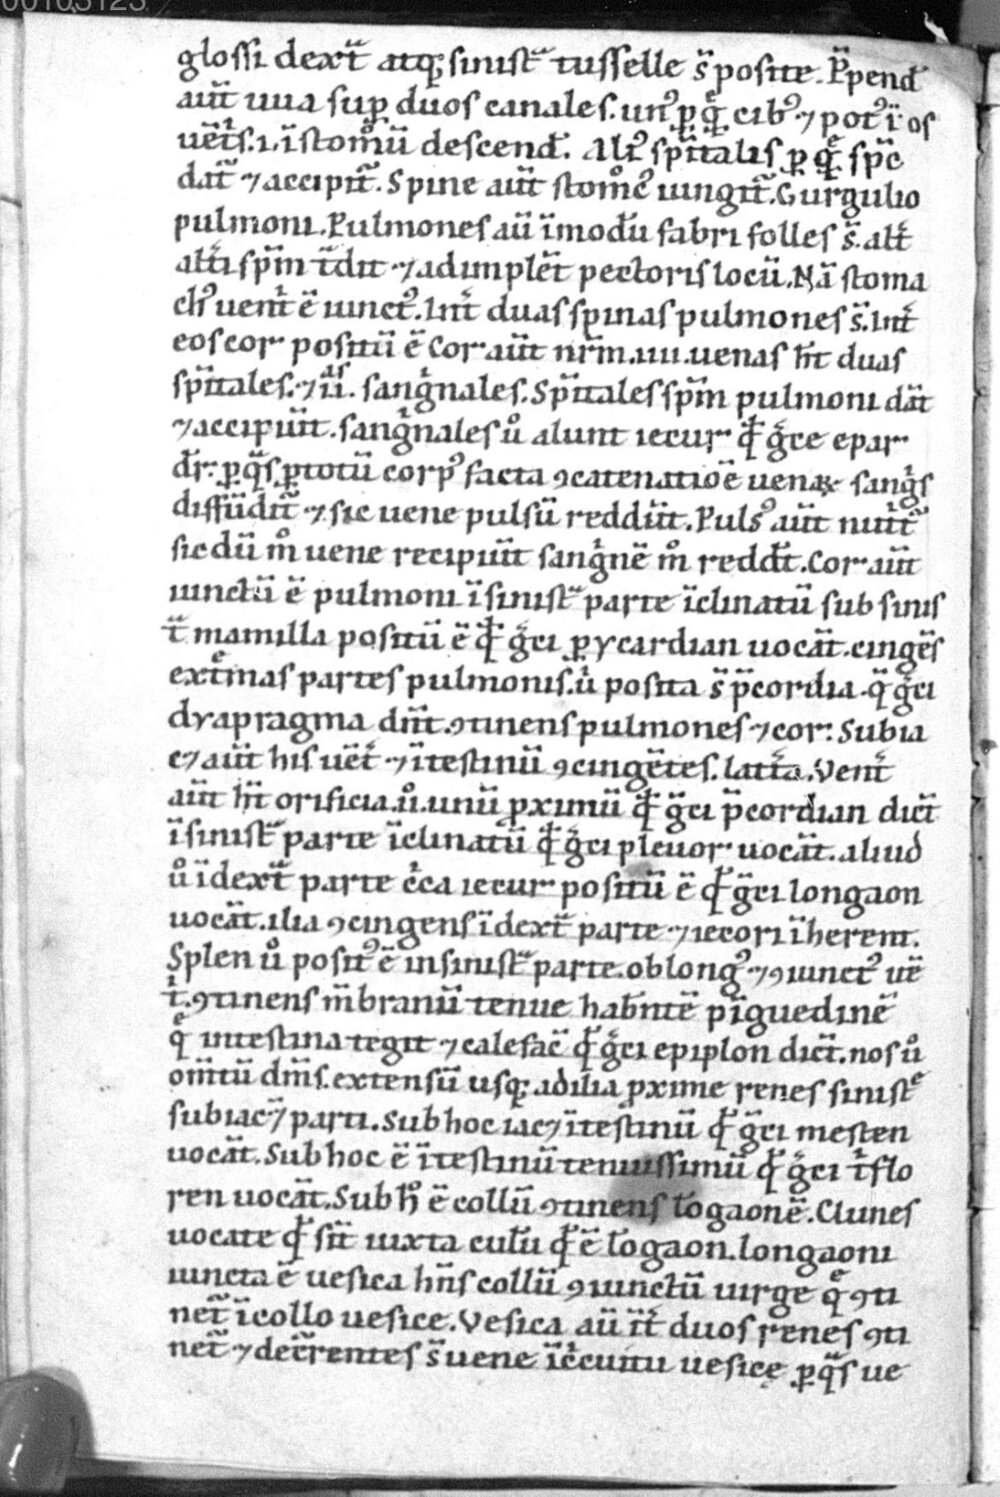 00103123
glossi dext̄ atq; sinist̄ tusselle s̄ posite. P̄pend̄
aūt uua sup̱ duos canales. un᷒ ꝑ q̄ cib᷒ ⁊ pot᷒ ī os
uēt̄s. i. ī stom̊ū descend̄. Alt᷒ sp̄italis ꝑ q̄ sp̄c
dat᷑ ⁊ accipit᷑. Spine aūt stom̊c᷒ iungit᷑. Gurgulio
pulmoni. Pulmones aū ī modū fabri folles s̄. alt᷑
alt᷑i sp̄m t᷑dit ⁊ adimplēt pectoris locū. Nā stoma
ch᷒ uent᷑ ē iunct᷒. Int᷑ duas spinas pulmones s̄. Int᷑
eos cor positū ē Cor aūt nr̄m .iiii. uenas h̄t duas
sp̄itales. ⁊ ii᷒. sangͥnales. Sp̄itales sp̄m pulmoni dāt
⁊ accipiūt. sangͥnales ů alunt iecur qđ ḡce epar
dr̄. ꝑ q̄s ꝑ totū corp᷒ facta ꝯcatenatiōē uenaꝝ sangͥs
diffūdit᷑ ⁊ sic uene pulsū reddūt. Puls᷒ aūt nutͥt᷑
sic dū m̊ uene recipiūt sangͥnē m̊ reddūt. Cor aūt
iunctū ē pulmoni ī sinist̄ parte īclinatū sub sinis
t᷑ mamilla positū ē qđ ḡci ꝑycardian uocāt. cingēs
ext᷑mas partes pulmonis. uͥ posita s̄ p̄cordia. q̄ ḡci
dyapragma dn̄t. ꝯtinens pulmones ⁊ cor. Subia
c⁊ aūt his uēt᷑ ⁊ ītestinū ꝯcingētes. latt᷑a. Vent᷑
aūt h̄t orificia. ů. unū ꝓximū qđ ḡci p̄cordian dict̄
ī sinist̄ parte īclinatū qđ ḡci pleuor uocāt. aliud
ů ī dext̄ parte cͥca iecur positū ē qđ ḡci longaon
uocāt. ilia ꝯcingens ī dext̄ parte ⁊ iecori īherent.
Splen ů posit᷒ ē in sinist̄ parte. oblong᷒ ⁊ ꝯiunct᷒ uē
tͥ. ꝯtinens m̄branū tenue habn̄tē pīguedinē
q̄ intestina tegit ⁊ calefac̄ qđ ḡci epiplon dict̄. nos ů
om̄tū dm̄s. extensū usq; ad ilia ꝓxime renes sinist̄
subiac⁊ parti. Sub hoc iac⁊ ītestinū qđ ḡci mesten
uocāt. Sub hoc ē ītestinū tenuissimū qđ ḡci tͥflo
ren uocāt. Sub h̊ ē collū ꝯtinens lōgaonē. Clunes
uocate qđ sīt iuxta culū qđ ē lōgaon. longaoni
iuncta ē uesica hn̄s collū ꝯiunctū uirge q̄ ꝯti
net᷑ ī collo uesice. Vesica aū īt᷑ duos renes ꝯti
net᷑ ⁊ decͬrentes s̄ uene ī cͥcuitu uesicę ꝑ q̄s ue